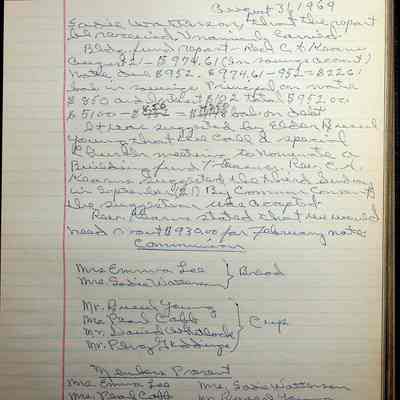 August 31, 1969
Sadie Watterson, that the report
be received. Unanimously Carried.
Bldg. fund report - Read C. A. Kearns
August 21 - $974.61 (In savings account)
Note due $952. $974.61 - 952 = $22.61
bal in savings. Principal on note
$850 and interest $102 total $952.00
$5100 - $850 = bal on debt
It was suggested by Elder Russell
Young that we call a special
Church meeting to nominate a
Building fund treasurer. Rev. C. A.
Kearns suggested the third Sunday
in September (21) By Common Consent
the suggestion was accepted.
Rev. Kearns stated that we would
need about $930.00 for February note.
Communion
Mrs. Emma Lee
Mrs. Sadie Watterson } Bread
Mr. Russell Young
Mrs. Pearl Cabb
Mr. David Whitlock } Cup
Mr. Percy Giddings
Members Present
Mrs. Emma Lee Mrs. Sadie Watterson
Mrs. Pearl Cabb Mr. Russell Young